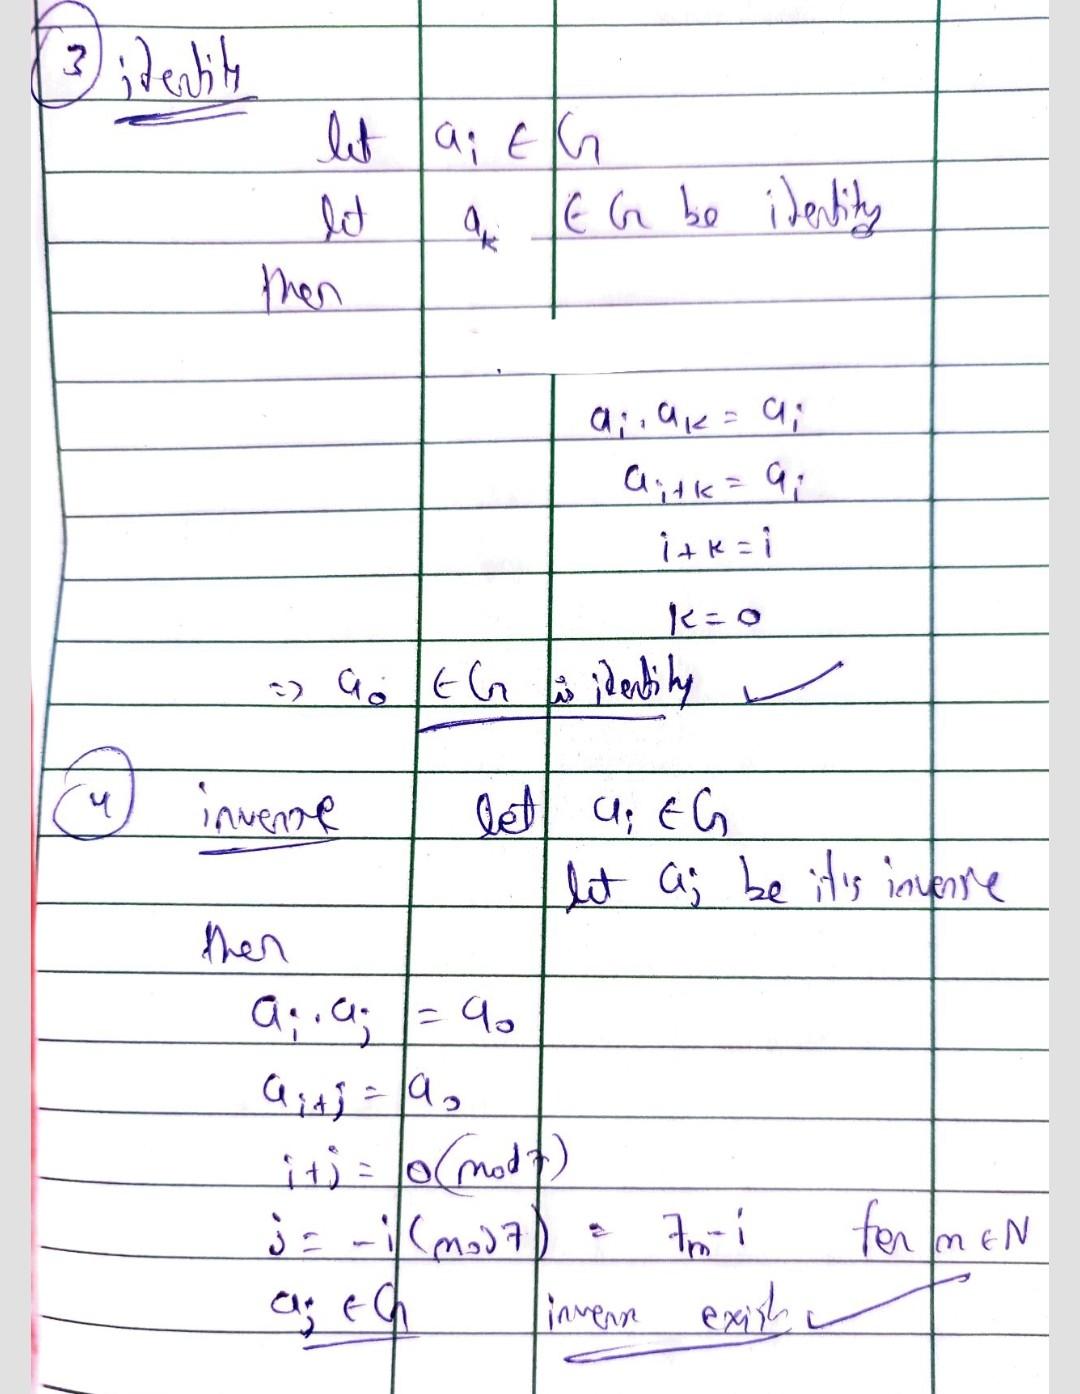 3 identity
let a_i ∈ G
let a_k ∈ G be identity
then
a_i . a_k = a_i
a_{i+k} = a_i
i + k = i
k = 0
=> a_0 ∈ G is identity ✓
4 inverse let a_i ∈ G
let a_j be it's inverse
then
a_i . a_j = a_0
a_{i+j} = a_0
i + j = 0 (mod 7)
j = -i (mod 7) = 7m - i for m ∈ N
a_j ∈ G inverse exist ✓